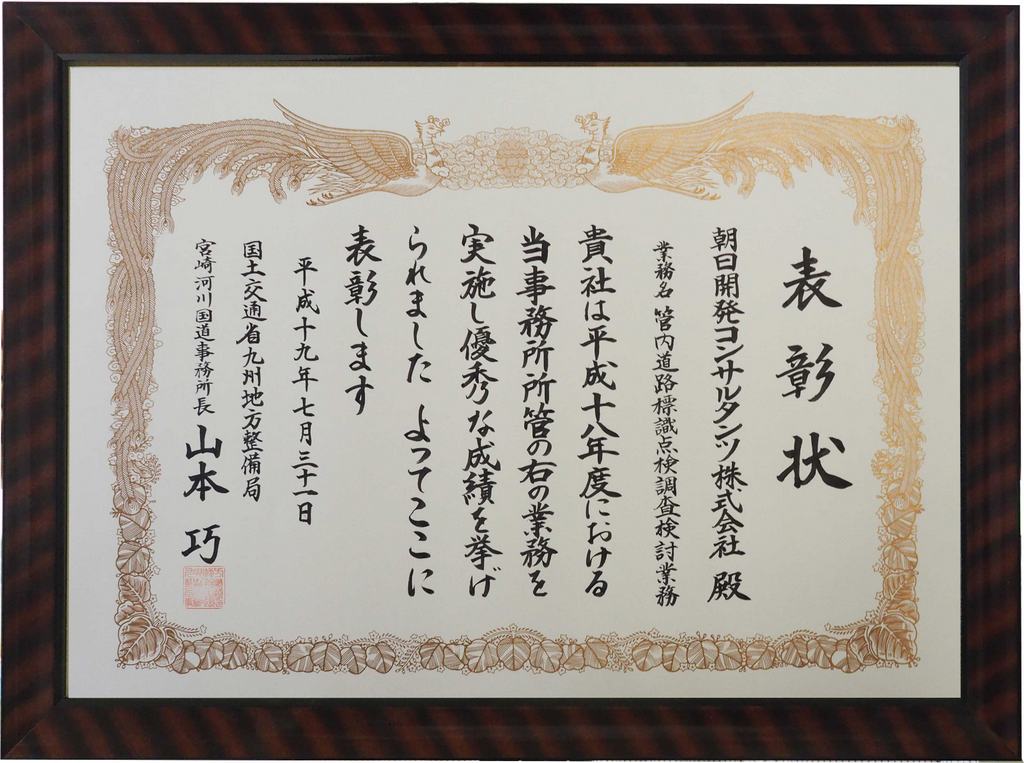 表彰状
朝日開発コンサルタンツ株式会社 殿
業務名 管内道路標識点検調査検討業務
貴社は平成十八年度における
当事務所所管の右の業務を
実施し優秀な成績を挙げ
られました よってここに
表彰します
平成十九年七月三十一日
国土交通省九州地方整備局
宮崎河川国道事務所長 山本 巧